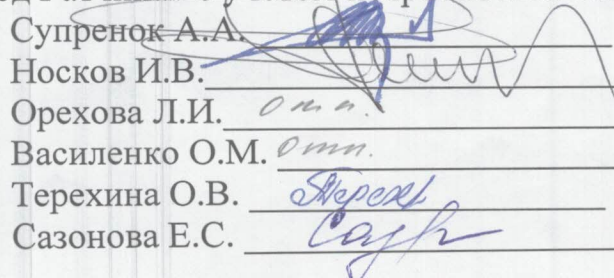 Супренок А.А.
Носков И.В.
Орехова Л.И. Отп.
Василенко О.М. Отп.
Терехина О.В. Терех
Сазонова Е.С.